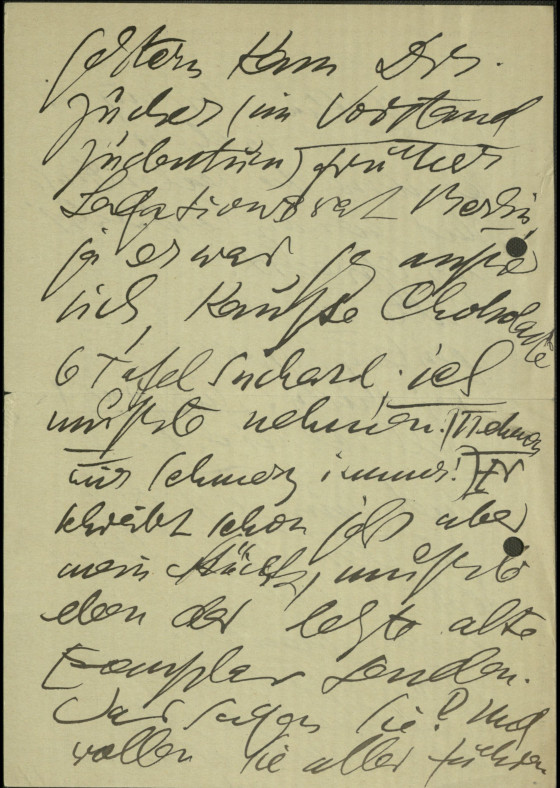 gestern kam Drs.
Zucker (im Vorstand
Judentum) früher
Legationsrat Berlin,
ja er war so außer
sich, kaufte Chokolade
6 Tafel Suchard. ich
mußte nehmen. (Nehmen
tut Schmerz immer!) Er
schreibt schon jetzt über
mein Stück, mußte
eben das letzte alte
Exemplar senden.
Was sagen Sie? Und
wollen Sie alles